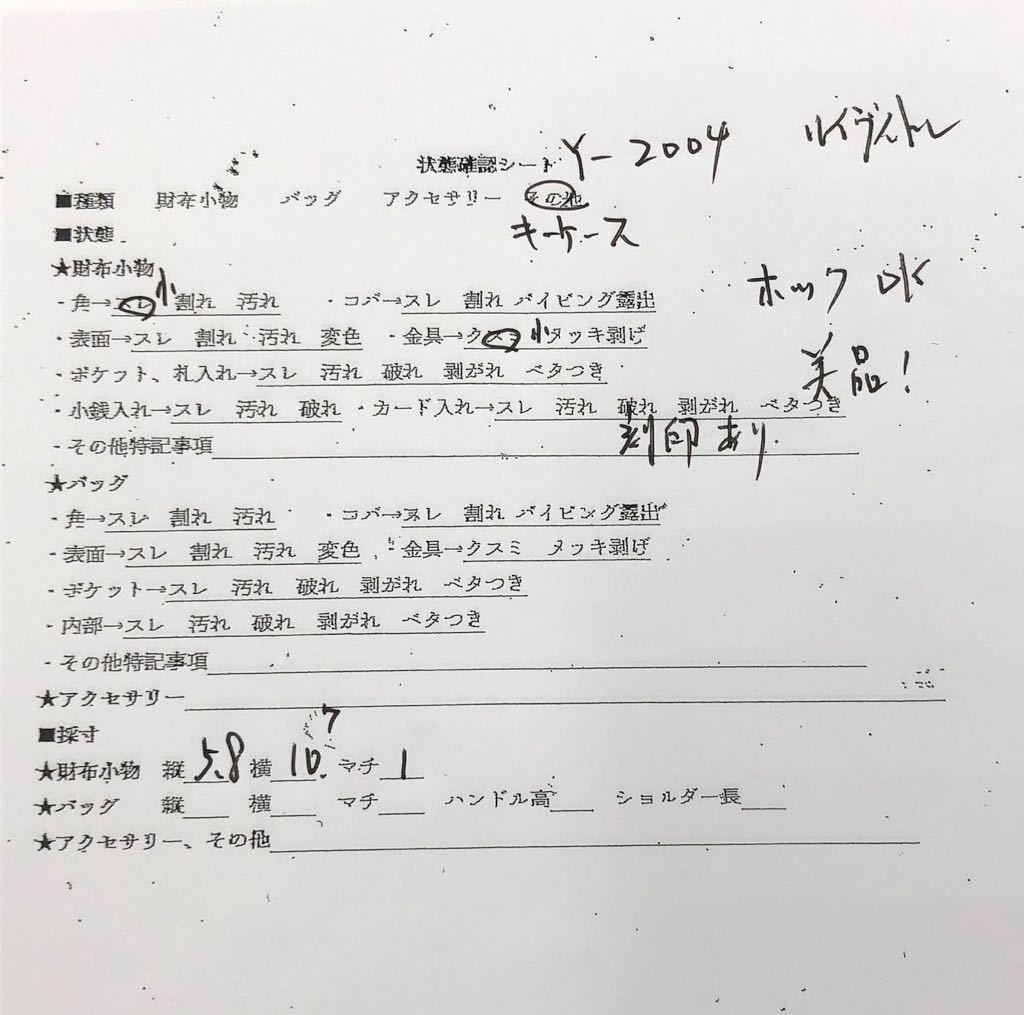 状態確認シート Y-2004 ルイヴィトン
■種類 財布小物 バッグ アクセサリー その他
■状態 キーケース
★財布小物
・角→スレ 小 割れ 汚れ ・コバ→スレ 割れ パイピング露出 ホック OK
・表面→スレ 割れ 汚れ 変色 ・金具→クスミ 小 メッキ剥げ
・ポケット、札入れ→スレ 汚れ 破れ 剥がれ ベタつき 美品!
・小銭入れ→スレ 汚れ 破れ ・カード入れ→スレ 汚れ 破れ 剥がれ ベタつき
・その他特記事項 刻印あり.
★バッグ
・角→スレ 割れ 汚れ ・コバ→スレ 割れ パイピング露出
・表面→スレ 割れ 汚れ 変色 ・金具→クスミ メッキ剥げ
・ポケット→スレ 汚れ 破れ 剥がれ ベタつき
・内部→スレ 汚れ 破れ 剥がれ ベタつき
・その他特記事項
★アクセサリー
■採寸
★財布小物 縦5.8 横10.7 マチ1
★バッグ 縦 横 マチ ハンドル高 ショルダー長
★アクセサリー、その他